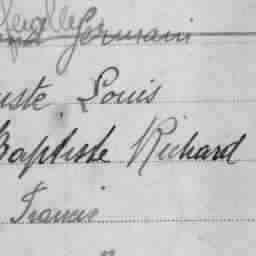 Germain
uste Louis
Baptiste Richard
Francis